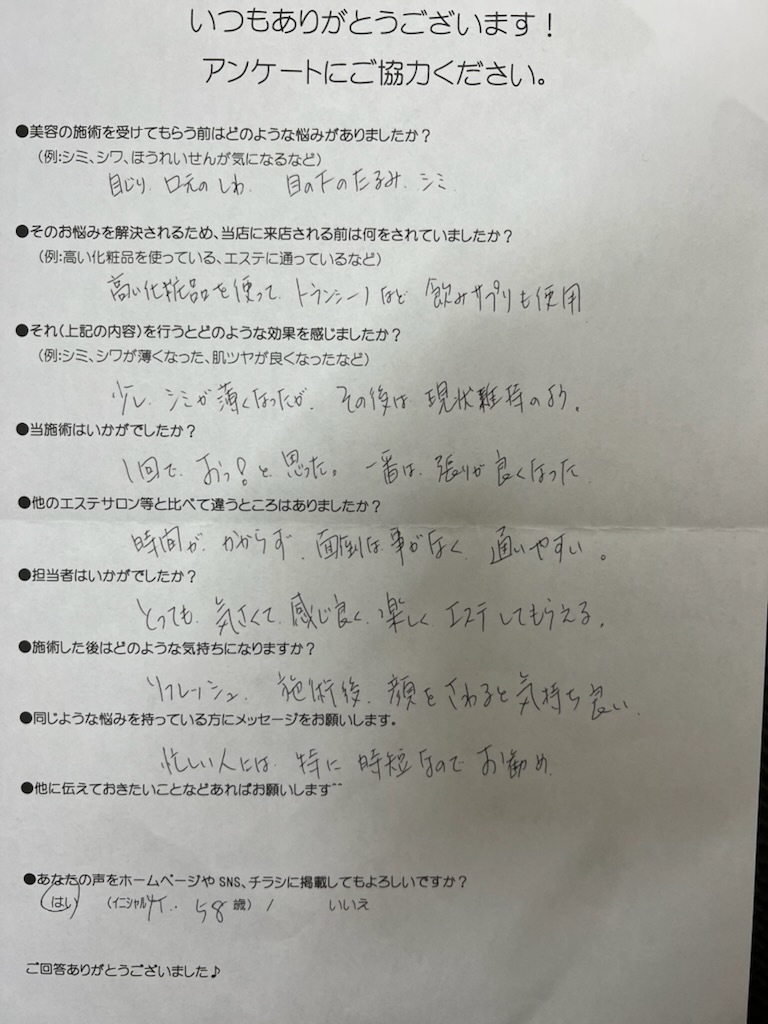 いつもありがとうございます！
アンケートにご協力ください。
●美容の施術を受けてもらう前はどのような悩みがありましたか？
（例:シミ、シワ、ほうれいせんが気になるなど）
目じり、口元のしわ、目の下のたるみ、シミ
●そのお悩みを解決されるため、当店に来店される前は何をされていましたか？
（例:高い化粧品を使っている、エステに通っているなど）
高い化粧品を使って、トランシーノなど 飲みサプリも使用
●それ（上記の内容）を行うとどのような効果を感じましたか？
（例:シミ、シワが薄くなった、肌ツヤが良くなったなど）
少し、シミが薄くなったが、その後は現状維持のよう。
●当施術はいかがでしたか？
1回で、おっ！と思った。一番は、張りが良くなった
●他のエステサロン等と比べて違うところはありましたか？
時間がかからず、面倒な事がなく、通いやすい。
●担当者はいかがでしたか？
とっても、気さくで、感じ良く、楽しくエステしてもらえる。
●施術した後はどのような気持ちになりますか？
リフレッシュ、施術後、顔をさわると気持ち良い。
●同じような悩みを持っている方にメッセージをお願いします。
忙しい人には、特に時短なのでお勧め
●他に伝えておきたいことなどあればお願いします^^
●あなたの声をホームページやSNS、チラシに掲載してもよろしいですか？
はい （イニシャル 58歳） / いいえ
ご回答ありがとうございました♪